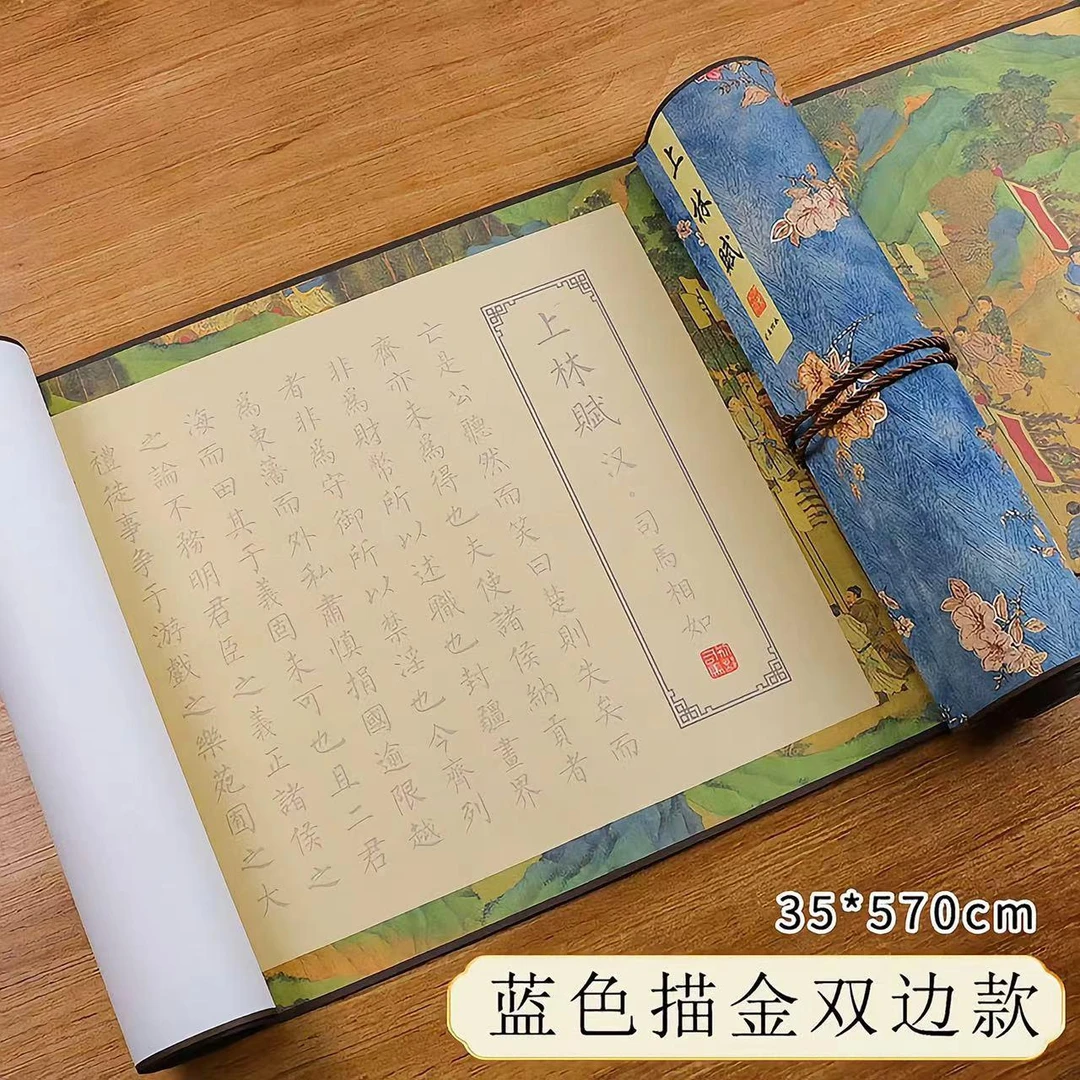 上林賦
上林賦
汉·司馬相如
亡是公聽然而笑曰楚則失矣而
齊亦未為得也夫使諸侯納貢者
非為財幣所以述職也封疆畫界
者非為守御所以禁淫也今齊列
為東藩而外私肅慎捐國逾限越
海而田其于義固未可也且二君
之論不務明君臣之義正諸侯之
禮徒事争于游戲之樂苑囿之大
35*570cm
蓝色描金双边款